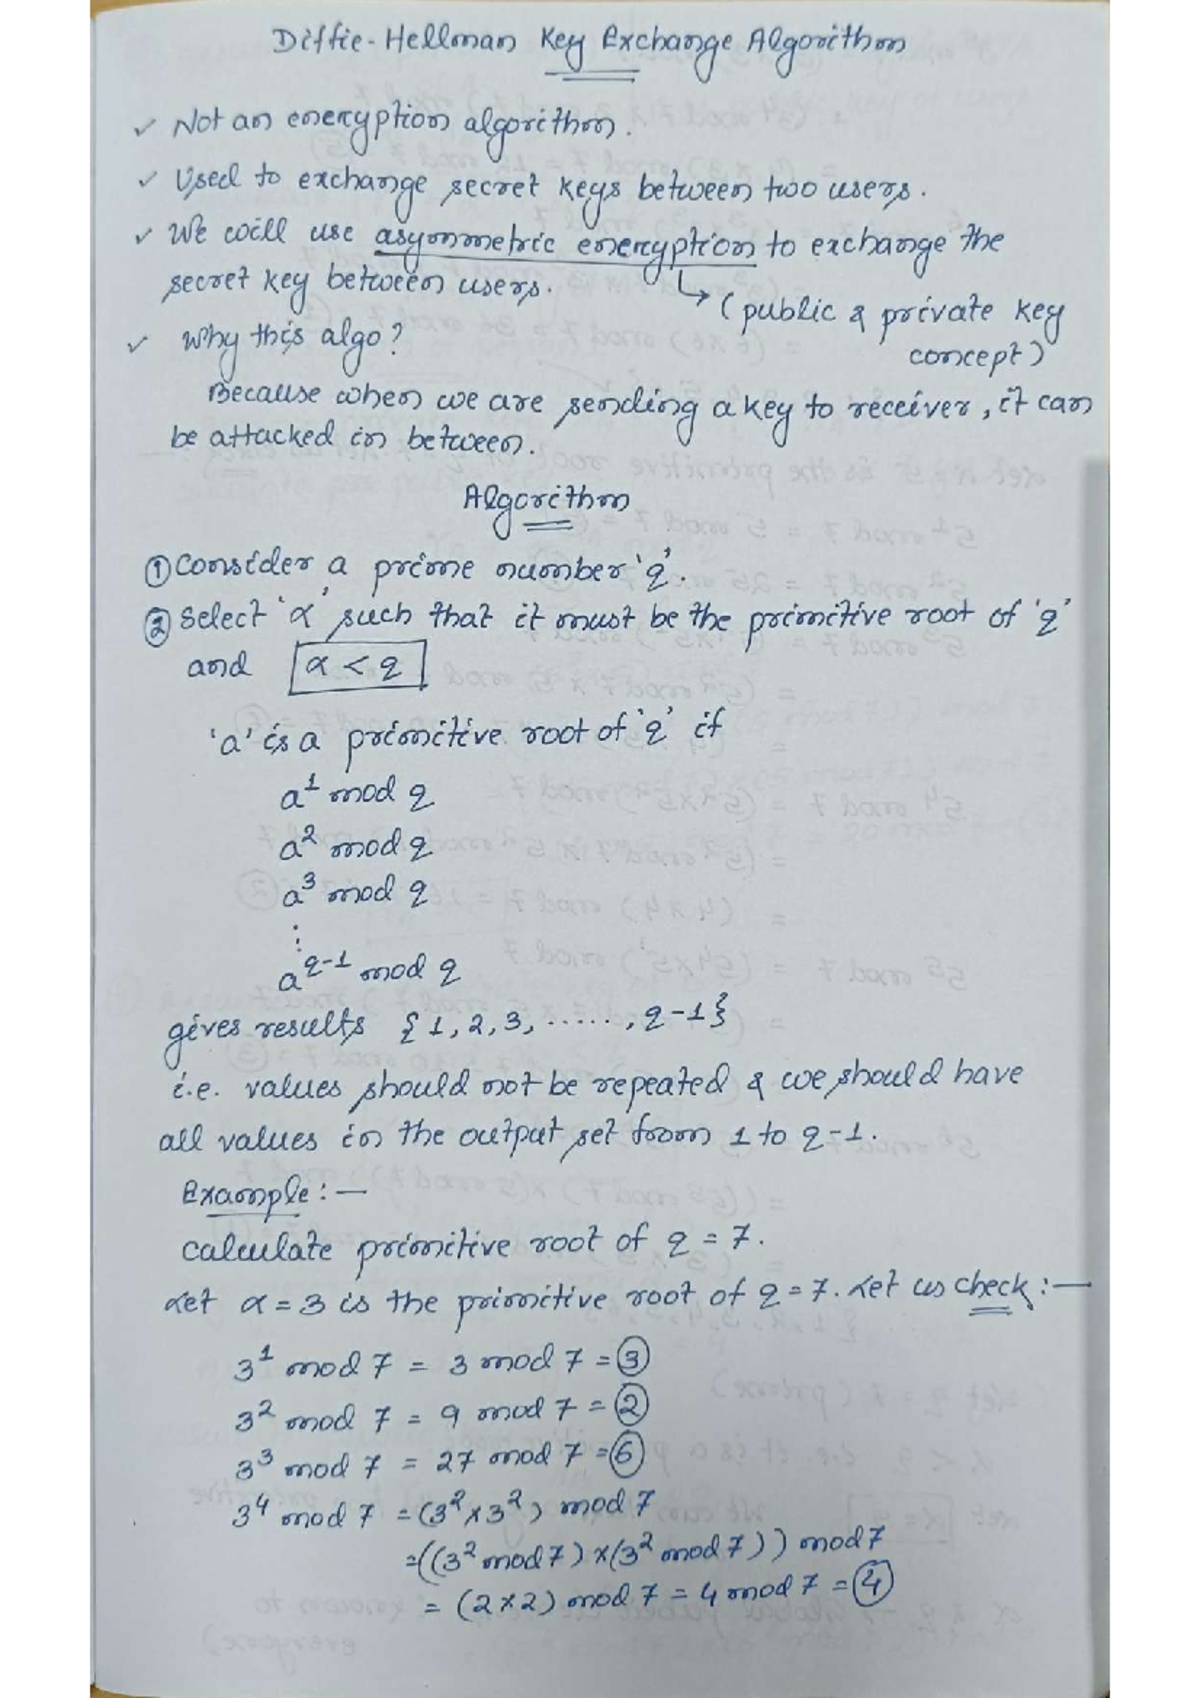 Diffie-Hellman Key Exchange Algorithm
✓ Not an encryption algorithm.
✓ Used to exchange secret keys between two users.
✓ We will use asymmetric encryption to exchange the
secret key between users.
↳ (public & private key
concept)
✓ Why this algo?
Because when we are sending a key to receiver, it can
be attacked in between.
Algorithm
① Consider a prime number 'q'.
② Select 'α' such that it must be the primitive root of 'q'
and α < q
'a' is a primitive root of 'q' if
a¹ mod q
a² mod q
a³ mod q
⋮
a^(q-1) mod q
gives results {1, 2, 3, ......, q-1}
i.e. values should not be repeated & we should have
all values in the output set from 1 to q-1.
Example:—
Calculate primitive root of q = 7.
Let α = 3 is the primitive root of q = 7. Let us check:—
3¹ mod 7 = 3 mod 7 = ③
3² mod 7 = 9 mod 7 = ②
3³ mod 7 = 27 mod 7 = ⑥
3⁴ mod 7 = (3² × 3²) mod 7
= ((3² mod 7) × (3² mod 7)) mod 7
= (2 × 2) mod 7 = 4 mod 7 = ④